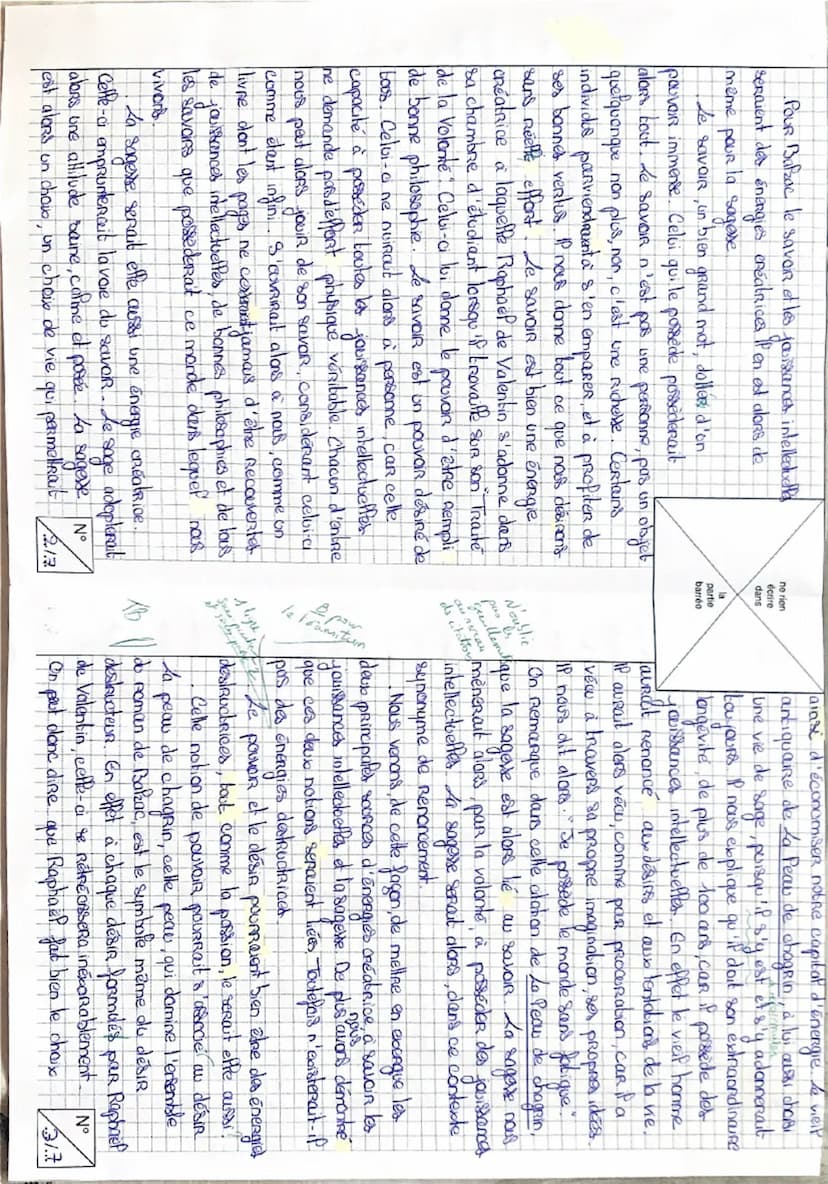 Pour Balzac le savoir et les jouissances intellectuelles
seraient des énergies créatrices il en est alors de
même pour la sagesse.
Le savoir, un bien grand mot, dôllés d'un
pouvoir immense. Celui qui le possède possèderait
alors tout. Le savoir n'est pas une personne, pas un objet
quelquonque non plus, non, c'est une richesse. Certains
individus parviendraient à s'en emparer, et à profiter de
ses bonnes vertus. Il nous donne tout ce que nous désirons
sans réelle effort. Le savoir est bien une énergie
créatrice à laquelle Raphaël de Valentin s'adonne dans
sa chambre d'étudiant lorsqu'il travaille sur son "Traité
de la Volonté". Celui-ci lui donne le pouvoir d'être rempli
de bonne philosophie. Le savoir est un pouvoir désiré de
tous. Celui-ci ne nuirait alors à personne, car celle
capacité à posséder toutes les jouissances intellectuelles
ne demande pas d'effort physique véritable. Chacun d'entre
nous peut alors jouir de son savoir, considérant celui-ci
comme étant infini. S'ouvrirait alors à nous, comme un
livre dont les pages ne cesseraient jamais d'être recouvertes
de jouissances intellectuelles, de bonnes philosophies et de tous
les savoirs que possèderait ce monde dans lequel nous
vivons.
La sagesse serait elle aussi une énergie créatrice.
Celle-ci emprunterait la voie du savoir. Le sage adopterait
alors une attitude saine, calme et posée. La sagesse
est alors un choix, un choix de vie qui permettrait
N°
2/7
ne rien
écrire
dans
la
partie
barrée
ainsi d'économiser notre capital d'énergie. Le vieil
antiquaire de La Peau de chagrin, à lui aussi choisi
une vie de sage, puisqu'il s'y est et s'y adonnerait
toujours. Il nous explique qu'il doit son extraordinaire
longévité, de plus de 100 ans, car il possède des
jouissances intellectuelles. En effet le vieil homme
aurait renoncé aux désirs et aux tentations de la vie.
Il aurait alors vécu, comme par procuration, car il a
vécu à travers sa propre imagination, ses propres idées.
Il nous dit alors : "Je possède le monde sans fatigue".
On remarque dans cette citation de La Peau de chagrin,
que la sagesse est alors lié au savoir. La sagesse nous
mènerait alors, par la volonté, à posséder des jouissances
intellectuelles. La sagesse serait alors, dans ce contexte
synonyme de Renoncement.
Nous venons, de cette façon, de mettre en exergue les
deux principales sources d'énergies créatrice, à savoir les
jouissances intellectuelles et la sagesse. De plus nous avons démontré
que ces deux notions seraient liées. Toutefois n'existerait-il
pas des énergies destructrices.
Le pouvoir et le désir pourraient bien être des énergies
destructrices, tout comme la passion, le serait elle aussi.
Cette notion de pouvoir pourrait s'associé au désir.
La peau de chagrin, cette peau, qui domine l'ensemble
du roman de Balzac, est le symbole même du désir
destructeur. En effet à chaque désir formulés par Raphaël
de Valentin, celle-ci se rétrécissera inexorablement.
On peut donc dire que Raphaël fait bien le choix
N°
3/7
N'oublie
pas les
guillemets
au niveau
de citation
B pour
la
TB